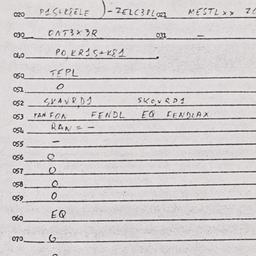 020 P1SLK8ELE )-ZELC38L 021 MESTLXX Z
030 OAT3X3R 031 -
040 POKR15+K81
050 TEPL
051 O
052 SKAVRD1 SKOVRD1
053 PAN FON FENDL EQ FENDLAX
054 RAN = -
055 -
056 O
057 O
058 O
059 O
060 EQ
070 G